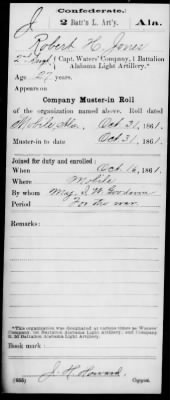 Confederate.
J 2 Batt's L. Art'y. Ala.
Robert H. Jones
Capt. Waters' Company, 1 Battalion
Alabama Light Artillery.*
Age 27 years.
Appears on
Company Muster-in Roll
of the organization named above. Roll dated
Mobile, Ala. Oct 31, 1861.
Muster-in to date Oct 31, 1861.
Joined for duty and enrolled:
When Oct 16, 1861.
Where Mobile
By whom Maj. W. Goodwin
Period For the war
Remarks:
*This organization was designated at various times as Waters'
Company, 1st Battalion Alabama Light Artillery, and Company
2d Battalion Alabama Light Artillery.
Book mark:
J. H. Howard
(655) Copyist.